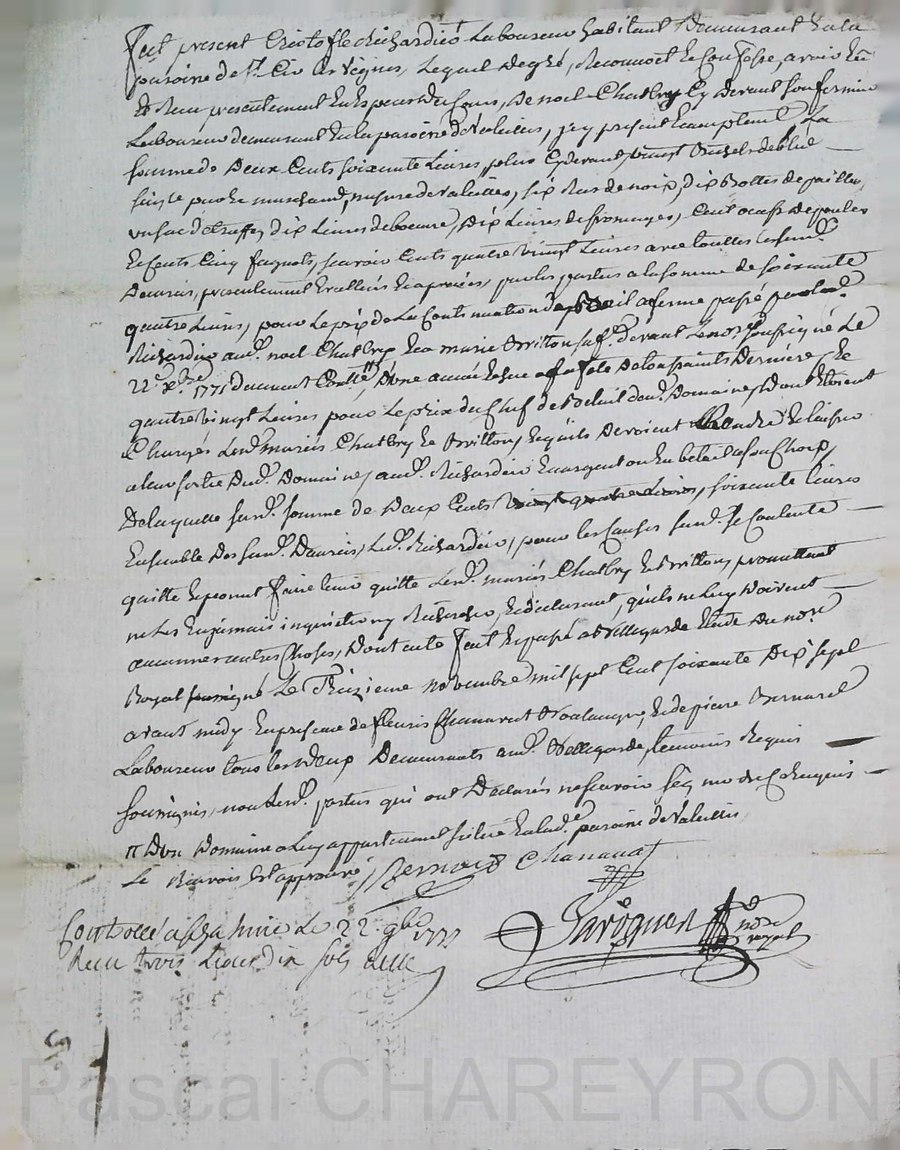 fut present Cristofle Richardier Laboureur habitant Demeurant en la
paroisse de St. Cir les vignes, Lequel degré, Reconnoit et Confesse, avoir Eu
et Recu presentement En Especes du Cours, De noel Chatbry Cy devant son fermier
Laboureur demeurant En la paroisse de Valeilles, icy present Et acceptant La
somme de Deux Cents soixante Livres, plus Cy devant vingt Bichets de bled
seigle poids marchand, mesure de Valeilles, six Ras de noix, dix Bottes de pailles,
un sac de truffes, dix Livres de beurre, Dix Livres de fromages, Cent oeufs De poules
Et Cents Cinq fagots, scavoir Cents quatre vingt Livres avec touttes les susd.
Denrées, presentement Evalluées Et apreciées, par les parties a la somme de soixante
quatre Livres, pour Le prix de La Continuation du Bail a ferme passé par led.
Richardier aud. noel Chatbry Et a marie Britton sa f. devant Le no.re soussigné Le
22e xbre 1771 duement Contlé, D'une année Echue a la fete De toussaints Derniere, Et
quatre vingt Livres pour Le prix du Chef de Betail dud. Domaine, Dont Etoient
Chargés Lesd. mariés Chatbry Et Britton, Et qu'ils Devoient Rendre Et laisser
a leur sortie Dud. Domaine, aud. Richardier En argent ou En betail a son Choix,
De laquelle susd. somme de Deux Cents soixante Livres
Ensemble Des susd. Denrées, Led. Richardier, pour les Causes susd. se Contente
quitte Et promet faire tenir quitte Lesd. mariés Chatbry Et Britton, promettant
ne Les En jamais inquietter ny Rechercher, Et declarant, qu'ils ne Luy Doivent
aucunes autres Choses, Dont acte fait Et passé a Bellegarde Etude Du no.re
Royal soussigné Le Treizieme novembre mil sept Cent soixante Dix sept
avant midy En presence de fleuris Chanavat Boulanger, Et de pierre Bernard
Laboureur tous les Deux Demeurants aud. Bellegarde, temoins Requis
soussignés, non Lesd. parties qui ont Declarés ne scavoir signer de Ce Enquis
π D'un Domaine a Luy appartenant scitué En lad.e paroisse de Valeilles,
Le Renvois Est approuvé, Bernard Chanavat
Controllé a Feurs Le 22 9bre 1777
Recu trois Livres dix sols
no.re royal
Pascal CHAREYRON